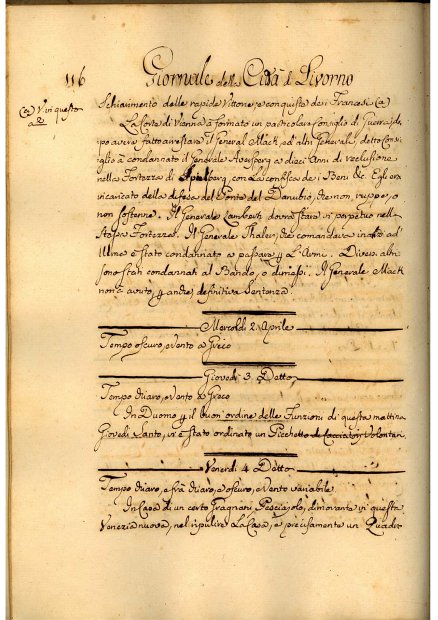 116 Giornale della Città di Livorno
(a) V. in questo
a 2
Schiarimento delle rapide Vittorie, e conquiste dei Francesi (a)
La Corte di Vienna à formato un particolare Consiglio di Guerra, do
po avere fatto arrestare il General Mack, ed altri Generali, detto Consi
glio à condannato il Generale Aversperg a dieci Anni di reclusione
nella Fortezza di Spielberg, con la confisca dei Beni &c. Egli era
incaricato della difesa del Ponte del Danubio, che non ruppe, o
non sostenne. Il Generale dovrà stare in perpetuo nella
stessa Fortezza. Il Generale Thaler, che comandava in
Ulma è stato condannato a passare p l'Armi. Diversi altri
sono stati condannati al Bando, o dimessi. Il Generale Mack
non à avuto, p anche, definitiva Sentenza.
Mercoldì 2. Aprile
Tempo oscuro, e Vento a Greco
Giovedì 3. Detto
Tempo chiaro, e Vento a Greco
In Duomo p il buon ordine delle Funzioni di questa mattina
Giovedì Santo, vi è stato ordinato un Picchetto di Cacciatori Volontari
Venerdì 4 Detto
Tempo chiaro, e frà chiaro, e oscuro, e Vento variabile
In Casa di un certo Fragnani Pesciajolo, dimorante in questa
Venezia nuova, nel ripulire la Casa, e precisamente un Quadro